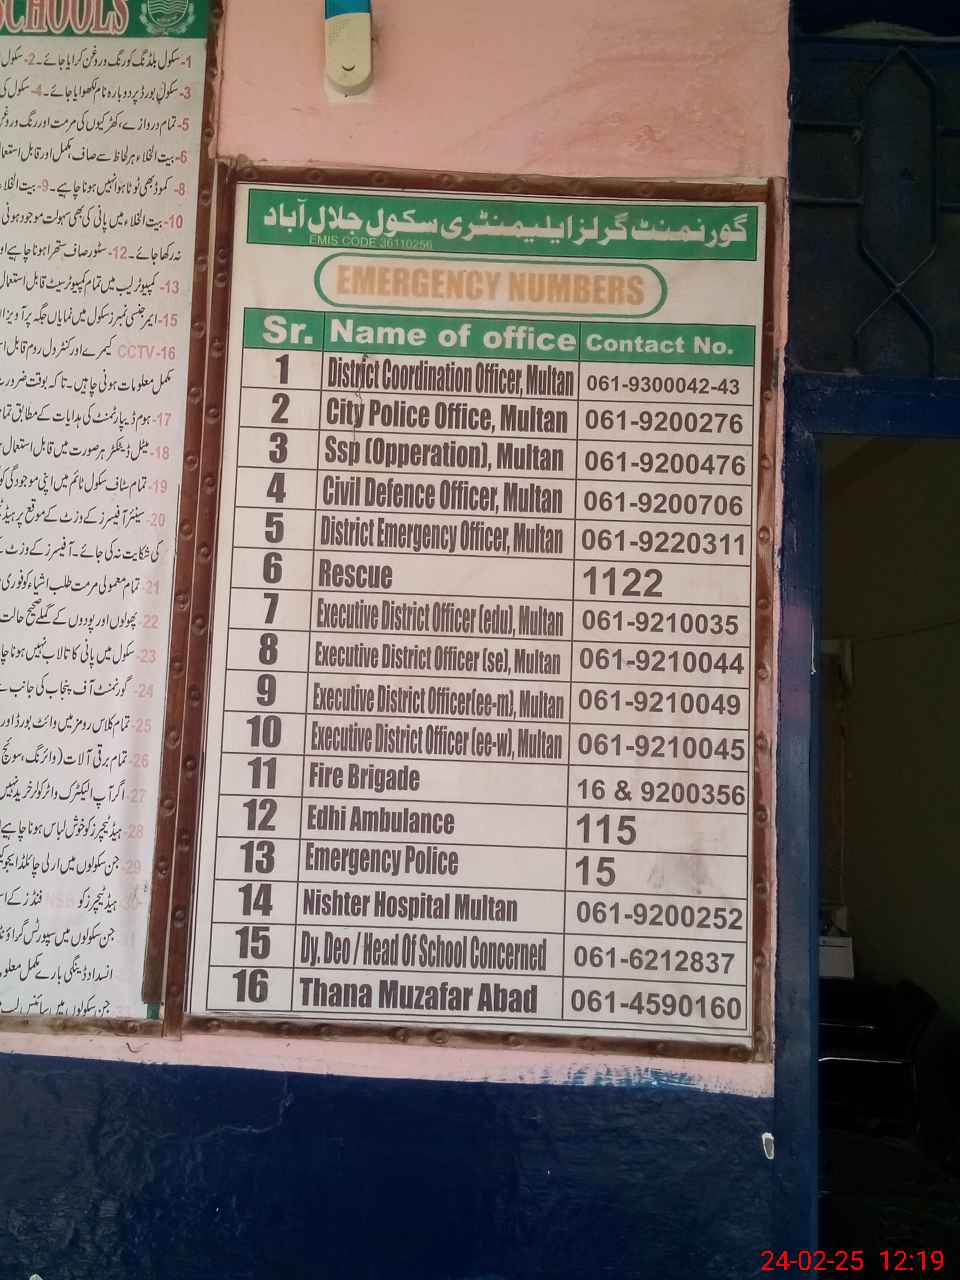 SCHOOLS
1- سکول بلڈنگ کو رنگ و روغن کرایا جائے۔ 2- سکول
3- سکول بورڈ پر دوبارہ نام لکھوایا جائے۔ 4- سکول کی
5- تمام دروازے، کھڑکیوں کی مرمت اور رنگ و روغن
6- بیت الخلاء ہر لحاظ سے صاف، مکمل اور قابل استعمال
8- کموڈ بھی ٹوٹا ہوا نہیں ہونا چاہیے۔ 9- بیت الخلاء
10- بیت الخلاء میں پانی کی بھی سہولت موجود ہونی
نہ رکھا جائے۔ 12- سٹور صاف ستھرا ہونا چاہیے اور
13- کمپیوٹر لیب میں تمام کمپیوٹر سیٹ قابل استعمال
15- ایمرجنسی نمبرز سکول میں نمایاں جگہ پر آویزاں
16- CCTV کیمرے اور کنٹرول روم قابل
مکمل معلومات ہونی چاہیں۔ تاکہ بوقت ضرورت
17- ہوم ڈیپارٹمنٹ کی ہدایات کے مطابق تمام
18- میٹل ڈیٹیکٹر ہر صورت میں قابل استعمال
19- تمام سٹاف سکول ٹائم میں اپنی موجودگی کو
20- سینئر آفیسرز کے وزٹ کے موقع پر ہیڈ
کی شکایت نہ کی جائے۔ آفیسرز کے وزٹ
21- تمام معمولی مرمت طلب اشیاء کو فوری
22- پھولوں اور پودوں کے گملے صحیح حالت
23- سکول میں پانی کا تالاب نہیں ہونا
24- گورنمنٹ آف پنجاب کی جانب سے
25- تمام کلاس رومز میں وائٹ بورڈ اور
26- تمام برقی آلات (وائرنگ، سوئچ
27- اگر آپ الیکٹرک واٹر کولر خرید نہیں
28- ہیڈ ٹیچرز کو خوش لباس ہونا چاہیے
29- جن سکولوں میں ارلی چائلڈ ایجوکیشن
30- ہیڈ ٹیچرز کو NSB فنڈز کے
جن سکولوں میں سپورٹس گراؤنڈ
انسداد ڈینگی بارے مکمل
جن سکولوں میں سائنس لیب
گورنمنٹ گرلز ایلیمنٹری سکول جلال آباد
EMIS CODE 36110256
EMERGENCY NUMBERS
Sr. Name of office Contact No.
1 District Coordination Officer, Multan 061-9300042-43
2 City Police Office, Multan 061-9200276
3 Ssp (Opperation), Multan 061-9200476
4 Civil Defence Officer, Multan 061-9200706
5 District Emergency Officer, Multan 061-9220311
6 Rescue 1122
7 Executive District Officer (edu), Multan 061-9210035
8 Executive District Officer (se), Multan 061-9210044
9 Executive District Officer(ee-m), Multan 061-9210049
10 Executive District Officer (ee-w), Multan 061-9210045
11 Fire Brigade 16 & 9200356
12 Edhi Ambulance 115
13 Emergency Police 15
14 Nishter Hospital Multan 061-9200252
15 Dy. Deo / Head Of School Concerned 061-6212837
16 Thana Muzafar Abad 061-4590160
24-02-25 12:19